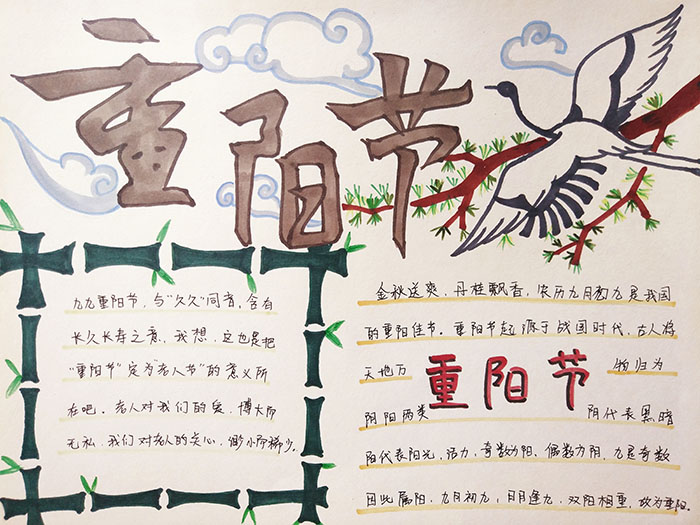 重阳节
九九重阳节，与“久久”同音，含有
长久长寿之意，我想，这也是把
“重阳节”定为“老人节”的意义所
在吧。老人对我们的爱，博大而
无私，我们对老人的关心，渺小而稀少。
金秋送爽，丹桂飘香，农历九月初九是我国
的重阳佳节。重阳节起源于战国时代，古人将
天地万 物归为
重阳节
阴阳两类 阴代表黑暗
阳代表阳光，活力，奇数为阳，偶数为阴，九是奇数
因此属阳，九月初九，日月逢九，双阳相重，故为重阳。